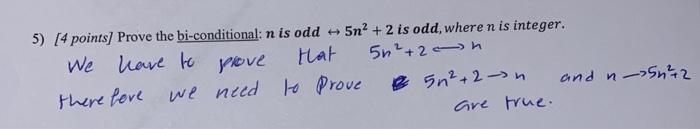 5) [4 points] Prove the bi-conditional: n is odd ↔ 5n² + 2 is odd, where n is integer.
We have to prove that 5n²+2 ⟷ n
therefore we need to prove 5n²+2 → n and n → 5n²+2
are true.